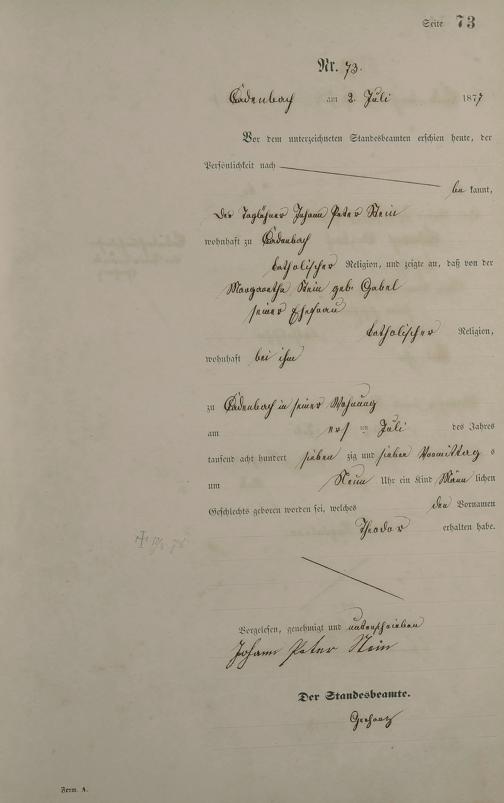 Seite 73
Nr. 73.
Cadenbach am 2. Juli 1877
Vor dem unterzeichneten Standesbeamten erschien heute, der
Persönlichkeit nach
be kannt,
der Taglöhner Johann Peter Stein
wohnhaft zu Cadenbach
katholischer Religion, und zeigte an, daß von der
Margaretha Stein geb. Gabel
seiner Ehefrau
katholischer Religion,
wohnhaft bei ihm
zu Cadenbach in seiner Wohnung
am ersten Juli des Jahres
tausend acht hundert sieben zig und sieben Vormittag s
um Neun Uhr ein Kind Männ lichen
Geschlechts geboren worden sei, welches den Vornamen
Theodor erhalten habe.
Vorgelesen, genehmigt und unterschrieben
Johann Peter Stein
Der Standesbeamte.
Form. A.